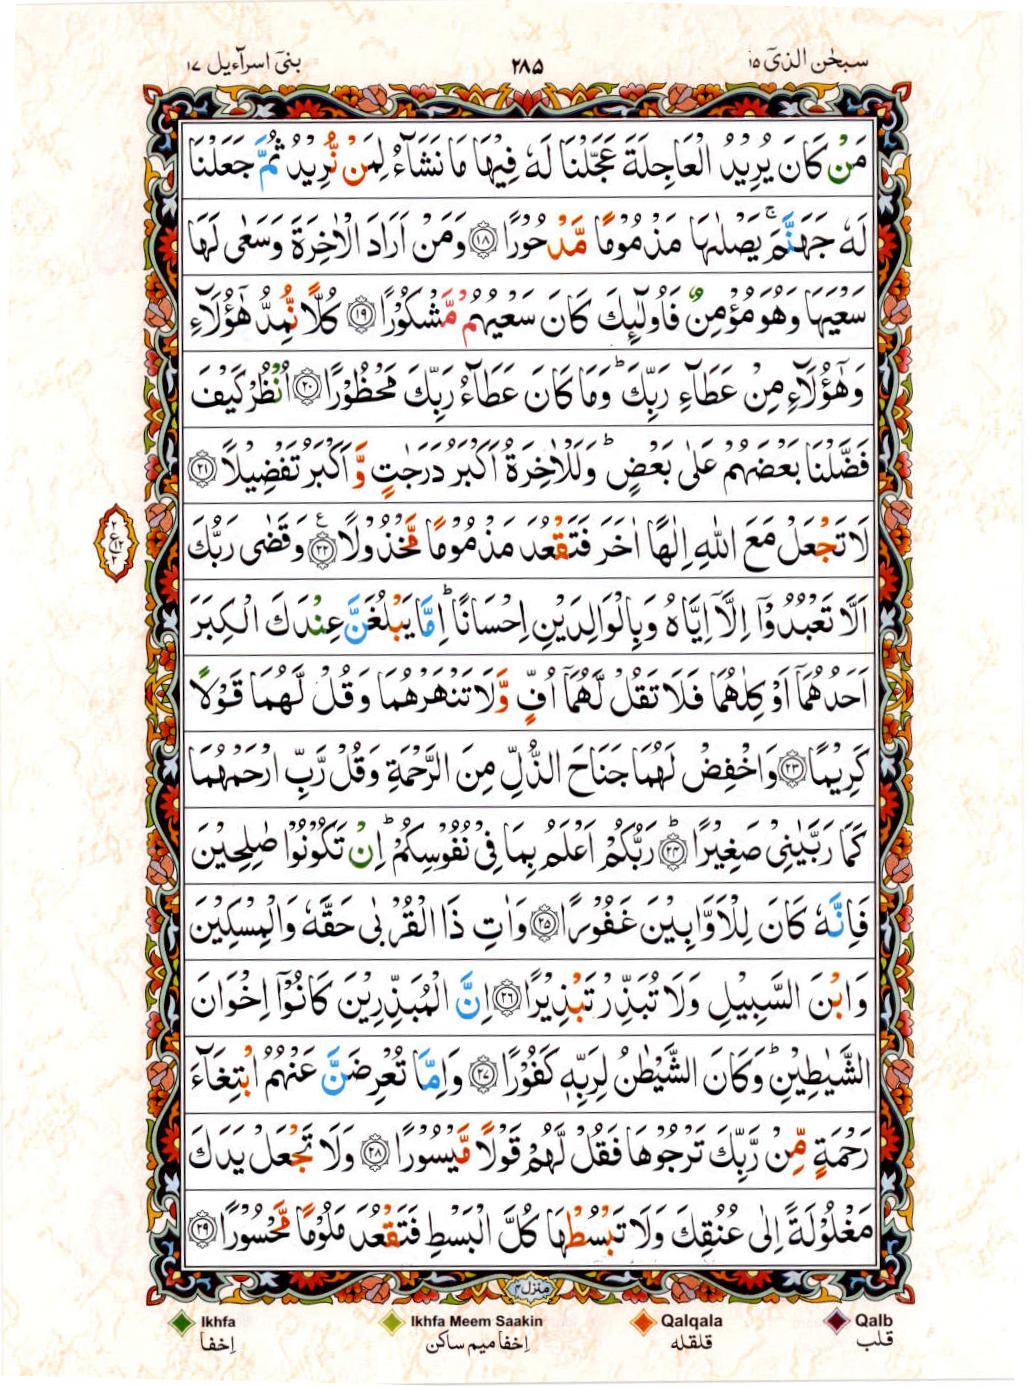 سبحٰن الذیٓ ۱۵
۲۸۵
بنیٓ اسرآءیل ۱۷
مَنْ كَانَ يُرِيْدُ الْعَاجِلَةَ عَجَّلْنَا لَهٗ فِيْهَا مَا نَشَآءُ لِمَنْ نُّرِيْدُ ثُمَّ جَعَلْنَا
لَهٗ جَهَنَّمَ ۚ يَصْلٰىهَا مَذْمُوْمًا مَّدْحُوْرًا ۝۱۸ وَمَنْ اَرَادَ الْاٰخِرَةَ وَسَعٰى لَهَا
سَعْيَهَا وَهُوَ مُؤْمِنٌ فَاُولٰٓئِكَ كَانَ سَعْيُهُمْ مَّشْكُوْرًا ۝۱۹ كُلًّا نُّمِدُّ هٰٓؤُلَآءِ
وَهٰٓؤُلَآءِ مِنْ عَطَآءِ رَبِّكَ ؕ وَمَا كَانَ عَطَآءُ رَبِّكَ مَحْظُوْرًا ۝۲۰ اُنْظُرْ كَيْفَ
فَضَّلْنَا بَعْضَهُمْ عَلٰى بَعْضٍ ؕ وَلَلْاٰخِرَةُ اَكْبَرُ دَرَجٰتٍ وَّاَكْبَرُ تَفْضِيْلًا ۝۲۱
لَا تَجْعَلْ مَعَ اللّٰهِ اِلٰهًا اٰخَرَ فَتَقْعُدَ مَذْمُوْمًا مَّخْذُوْلًا ۝۲۲ ع وَقَضٰى رَبُّكَ
اَلَّا تَعْبُدُوْٓا اِلَّآ اِيَّاهُ وَبِالْوَالِدَيْنِ اِحْسَانًا ؕ اِمَّا يَبْلُغَنَّ عِنْدَكَ الْكِبَرَ
اَحَدُهُمَآ اَوْ كِلٰهُمَا فَلَا تَقُلْ لَّهُمَآ اُفٍّ وَّلَا تَنْهَرْهُمَا وَقُلْ لَّهُمَا قَوْلًا
كَرِيْمًا ۝۲۳ وَاخْفِضْ لَهُمَا جَنَاحَ الذُّلِّ مِنَ الرَّحْمَةِ وَقُلْ رَّبِّ ارْحَمْهُمَا
كَمَا رَبَّيٰنِيْ صَغِيْرًا ۝۲۴ؕ رَبُّكُمْ اَعْلَمُ بِمَا فِيْ نُفُوْسِكُمْ ؕ اِنْ تَكُوْنُوْا صٰلِحِيْنَ
فَاِنَّهٗ كَانَ لِلْاَوَّابِيْنَ غَفُوْرًا ۝۲۵ وَاٰتِ ذَا الْقُرْبٰى حَقَّهٗ وَالْمِسْكِيْنَ
وَابْنَ السَّبِيْلِ وَلَا تُبَذِّرْ تَبْذِيْرًا ۝۲۶ اِنَّ الْمُبَذِّرِيْنَ كَانُوْٓا اِخْوَانَ
الشَّيٰطِيْنِ ؕ وَكَانَ الشَّيْطٰنُ لِرَبِّهٖ كَفُوْرًا ۝۲۷ وَاِمَّا تُعْرِضَنَّ عَنْهُمُ ابْتِغَآءَ
رَحْمَةٍ مِّنْ رَّبِّكَ تَرْجُوْهَا فَقُلْ لَّهُمْ قَوْلًا مَّيْسُوْرًا ۝۲۸ وَلَا تَجْعَلْ يَدَكَ
مَغْلُوْلَةً اِلٰى عُنُقِكَ وَلَا تَبْسُطْهَا كُلَّ الْبَسْطِ فَتَقْعُدَ مَلُوْمًا مَّحْسُوْرًا ۝۲۹
منزل ۴
Ikhfa
Ikhfa Meem Saakin
Qalqala
Qalb
اِخفا
اِخفا میم ساکن
قلقله
قلب